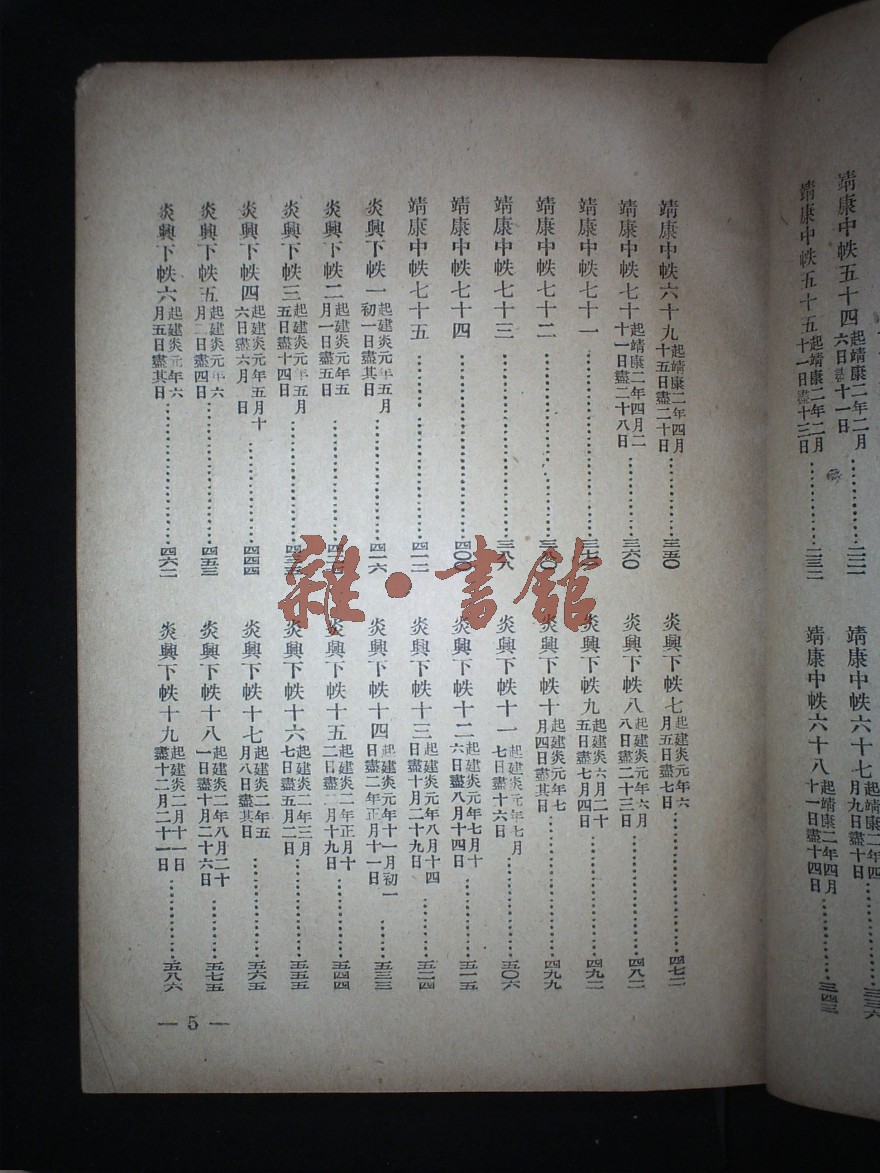 靖康中帙五十四 起靖康二年二月六日盡十一日
靖康中帙五十五 起靖康二年二月十一日盡十三日 二三二
靖康中帙六十七 月九日盡十日 三三六
靖康中帙六十八 起靖康二年四月十一日盡十四日 三四三
靖康中帙六十九 起靖康二年四月十五日盡二十日 三五〇
靖康中帙七十 起靖康二年四月二十一日盡二十八日 三六〇
靖康中帙七十一
靖康中帙七十二
靖康中帙七十三 三八八
靖康中帙七十四 四〇〇
靖康中帙七十五 四一二
炎興下帙一 起建炎元年五月初一日盡其日 四一六
炎興下帙二 起建炎元年五月一日盡五日
炎興下帙三 起建炎元年五月五日盡十四日
炎興下帙四 起建炎元年五月十六日盡六月 日 四四四
炎興下帙五 起建炎元年六月二日盡四日 四五三
炎興下帙六 起建炎元年六月五日盡其日 四六二
炎興下帙七 起建炎元年六月五日盡七日 四七二
炎興下帙八 起建炎元年六月八日盡二十三日 四八二
炎興下帙九 起建炎六月二十五日盡七月四日 四九二
炎興下帙十 起建炎元年七月四日盡其日 四九九
炎興下帙十一 起建炎元年七月七日盡十六日 五〇六
炎興下帙十二 起建炎元年七月十六日盡八月十四日 五一五
炎興下帙十三 起建炎元年八月十四日盡十月二十九日 五二四
炎興下帙十四 起建炎元年十一月初一日盡二年正月十一日 五三三
炎興下帙十五 起建炎二年正月十二日盡二月十九日 五四四
炎興下帙十六 起建炎二年三月七日盡五月二日 五五五
炎興下帙十七 起建炎二年五月八日盡其日 五六五
炎興下帙十八 起建炎二年八月二十一日盡十月二十六日 五七五
炎興下帙十九 起建炎二月十一日盡十二月二十一日 五八六
— 5 —
雜·書館